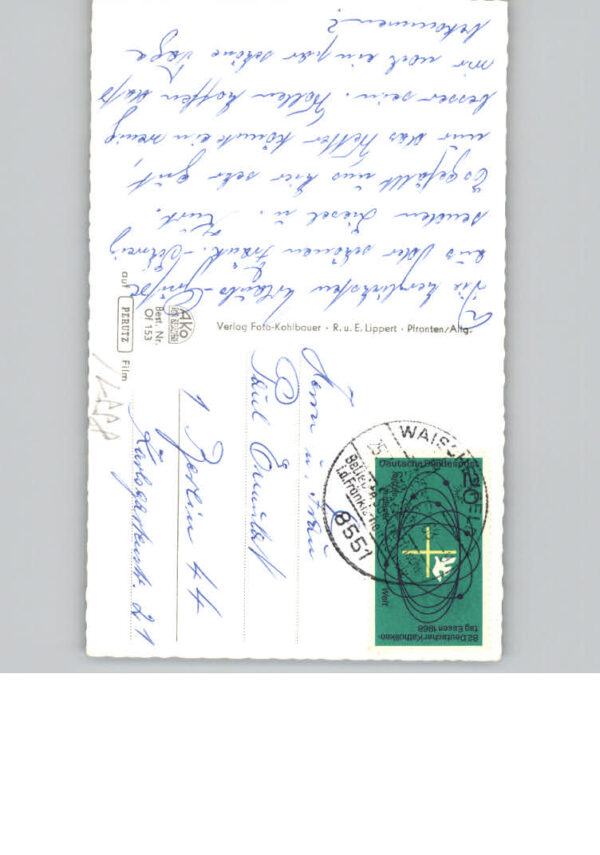 Die herzlichsten Urlaubs-Grüße
aus der schönen Fränk.-Schweiz
senden Liesel u. Kurt.
Es gefällt uns hier sehr gut,
nur das Wetter könnte ein wenig
besser sein. Wollen hoffen daß
wir noch ein paar schöne Tage
bekommen?
Verlag Foto-Kohlbauer · R. u. E. Lippert · Pfronten/Allg.
AKo
Best. Nr.
Of 153
auf PERUTZ Film
Herrn u. Frau
Paul
1 Berlin 44
Karlsgartenstr. 21
WAISCHENFELD
8551
i.d.Fränk.
Deutsche Bundespost
20
82. Deutscher Katholiken-
tag Essen 1968
Welt